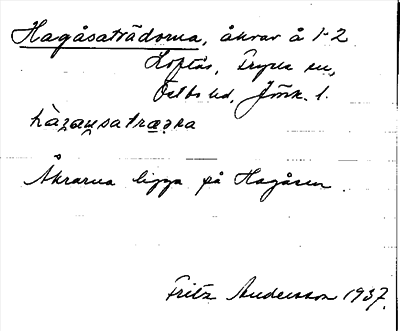 Hagåsaträdorna, åkrar å 1-2
Loftås, Fryele sn,
Östbo hd, Jönk. l.
Åkrarna ligga på Hagåsen.
Fritz Andersson 1937.